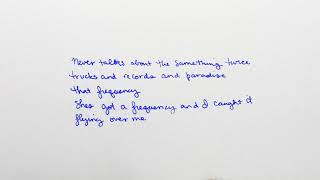 Never talks about the something twice
trucks and records and paradise
that frequency
Shes got a frequency and I caught it
flying over me